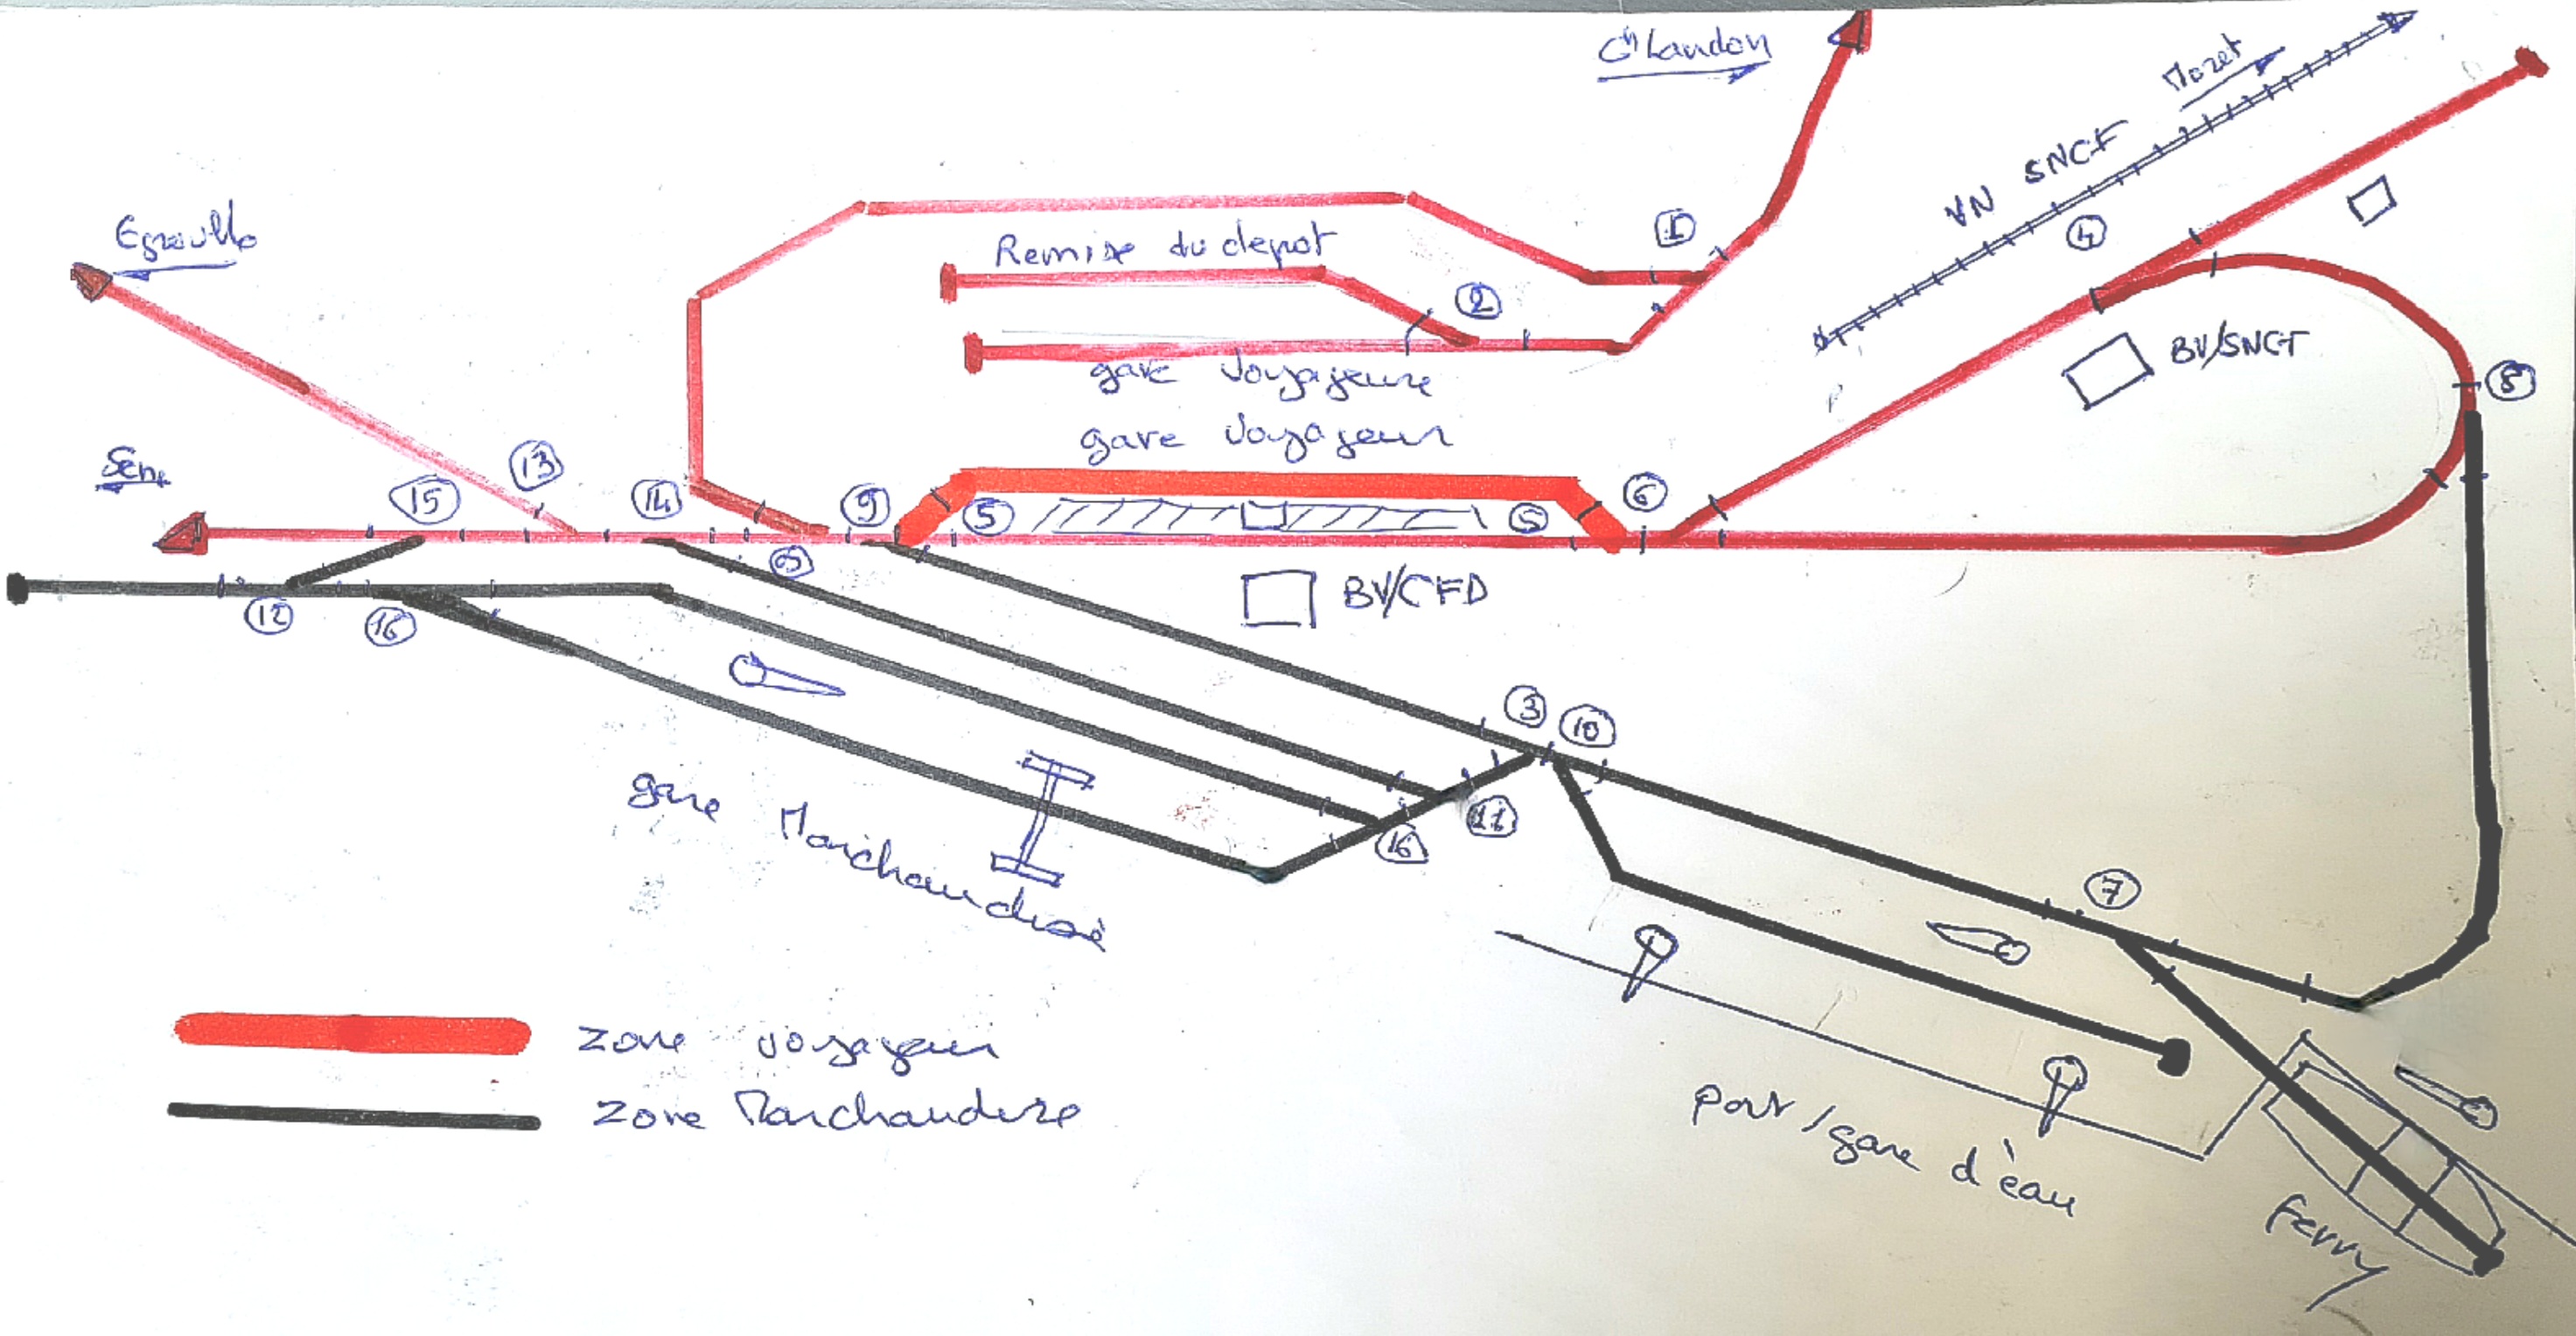 Ch Landon
Moret
VN SNCF
1
4
Egreville
Remise du depot
2
gare voyageure
BV/SNCF
8
gare voyageur
Sens
15
13
14
9
5
5
6
9
BV/CFD
12
16
3
10
gare Marchandise
16
11
7
port/gare d'eau
ferry
zone voyageur
zone Marchandise